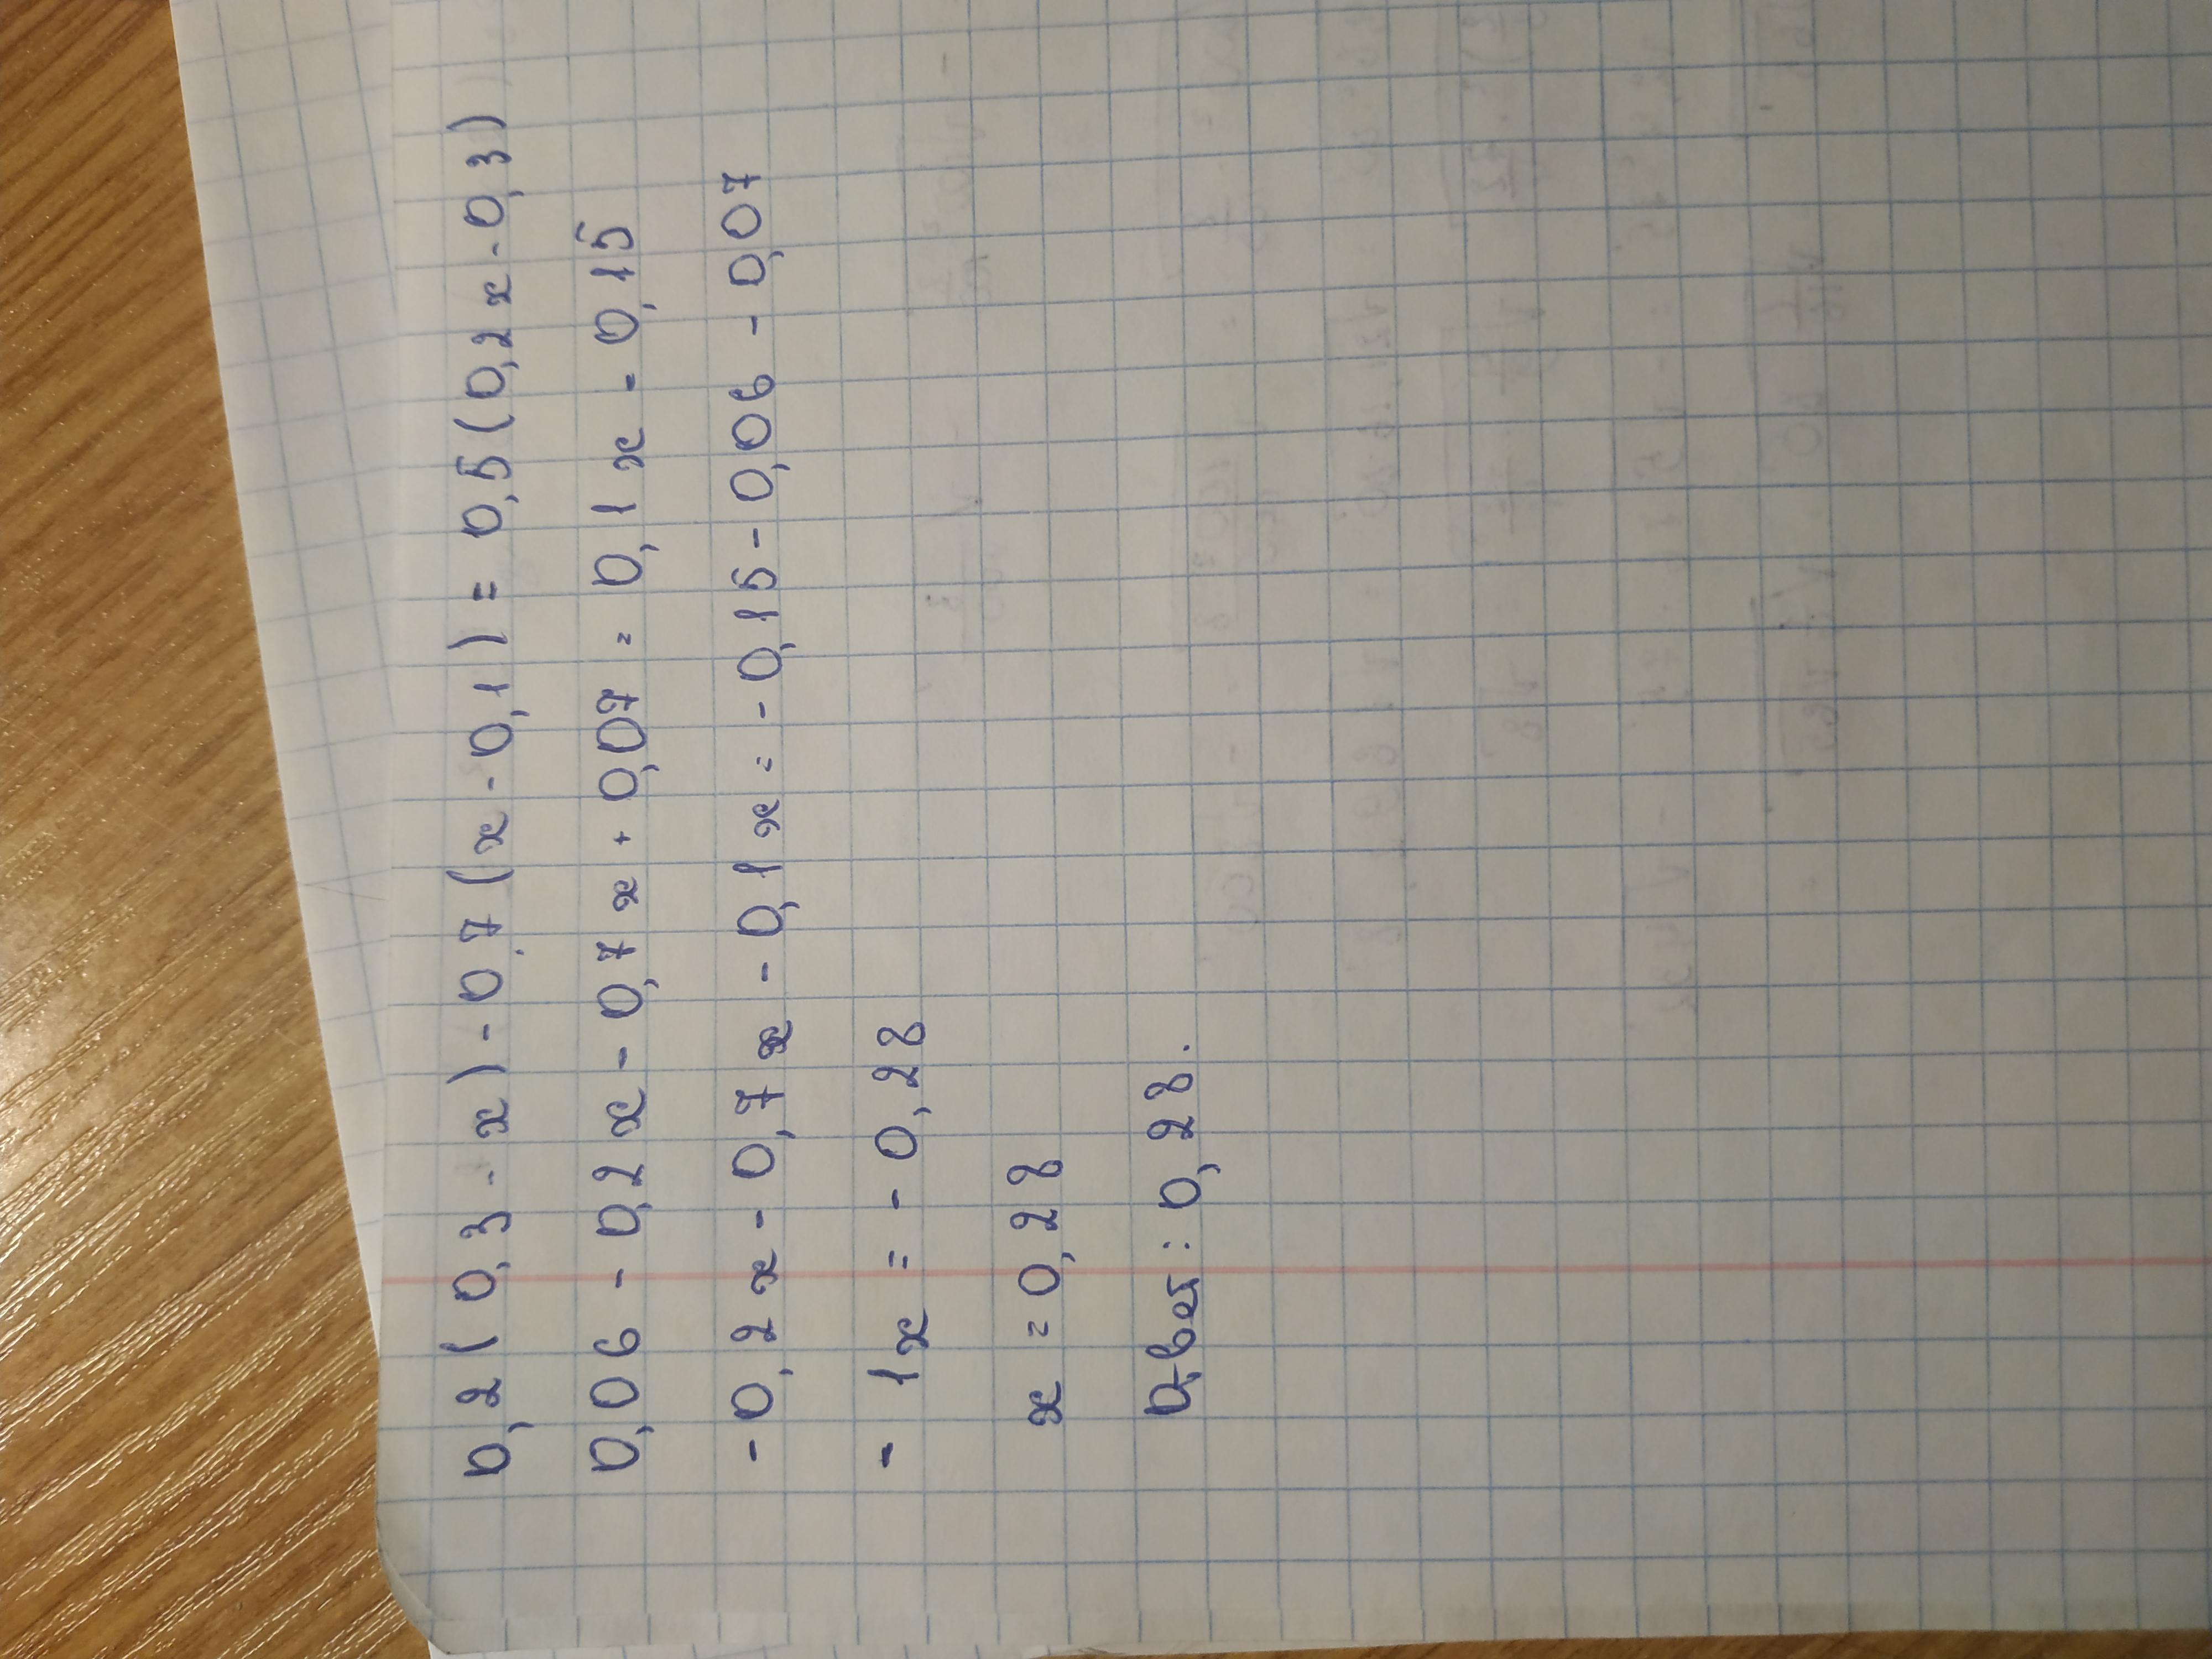 0,2(0,3-x)-0,7(x-0,1)=0,5(0,2x-0,3)
0,06-0,2x-0,7x+0,07=0,1x-0,15
-0,2x-0,7x-0,1x=-0,15-0,06-0,07
-1x=-0,28
x=0,28
Ответ: 0,28.